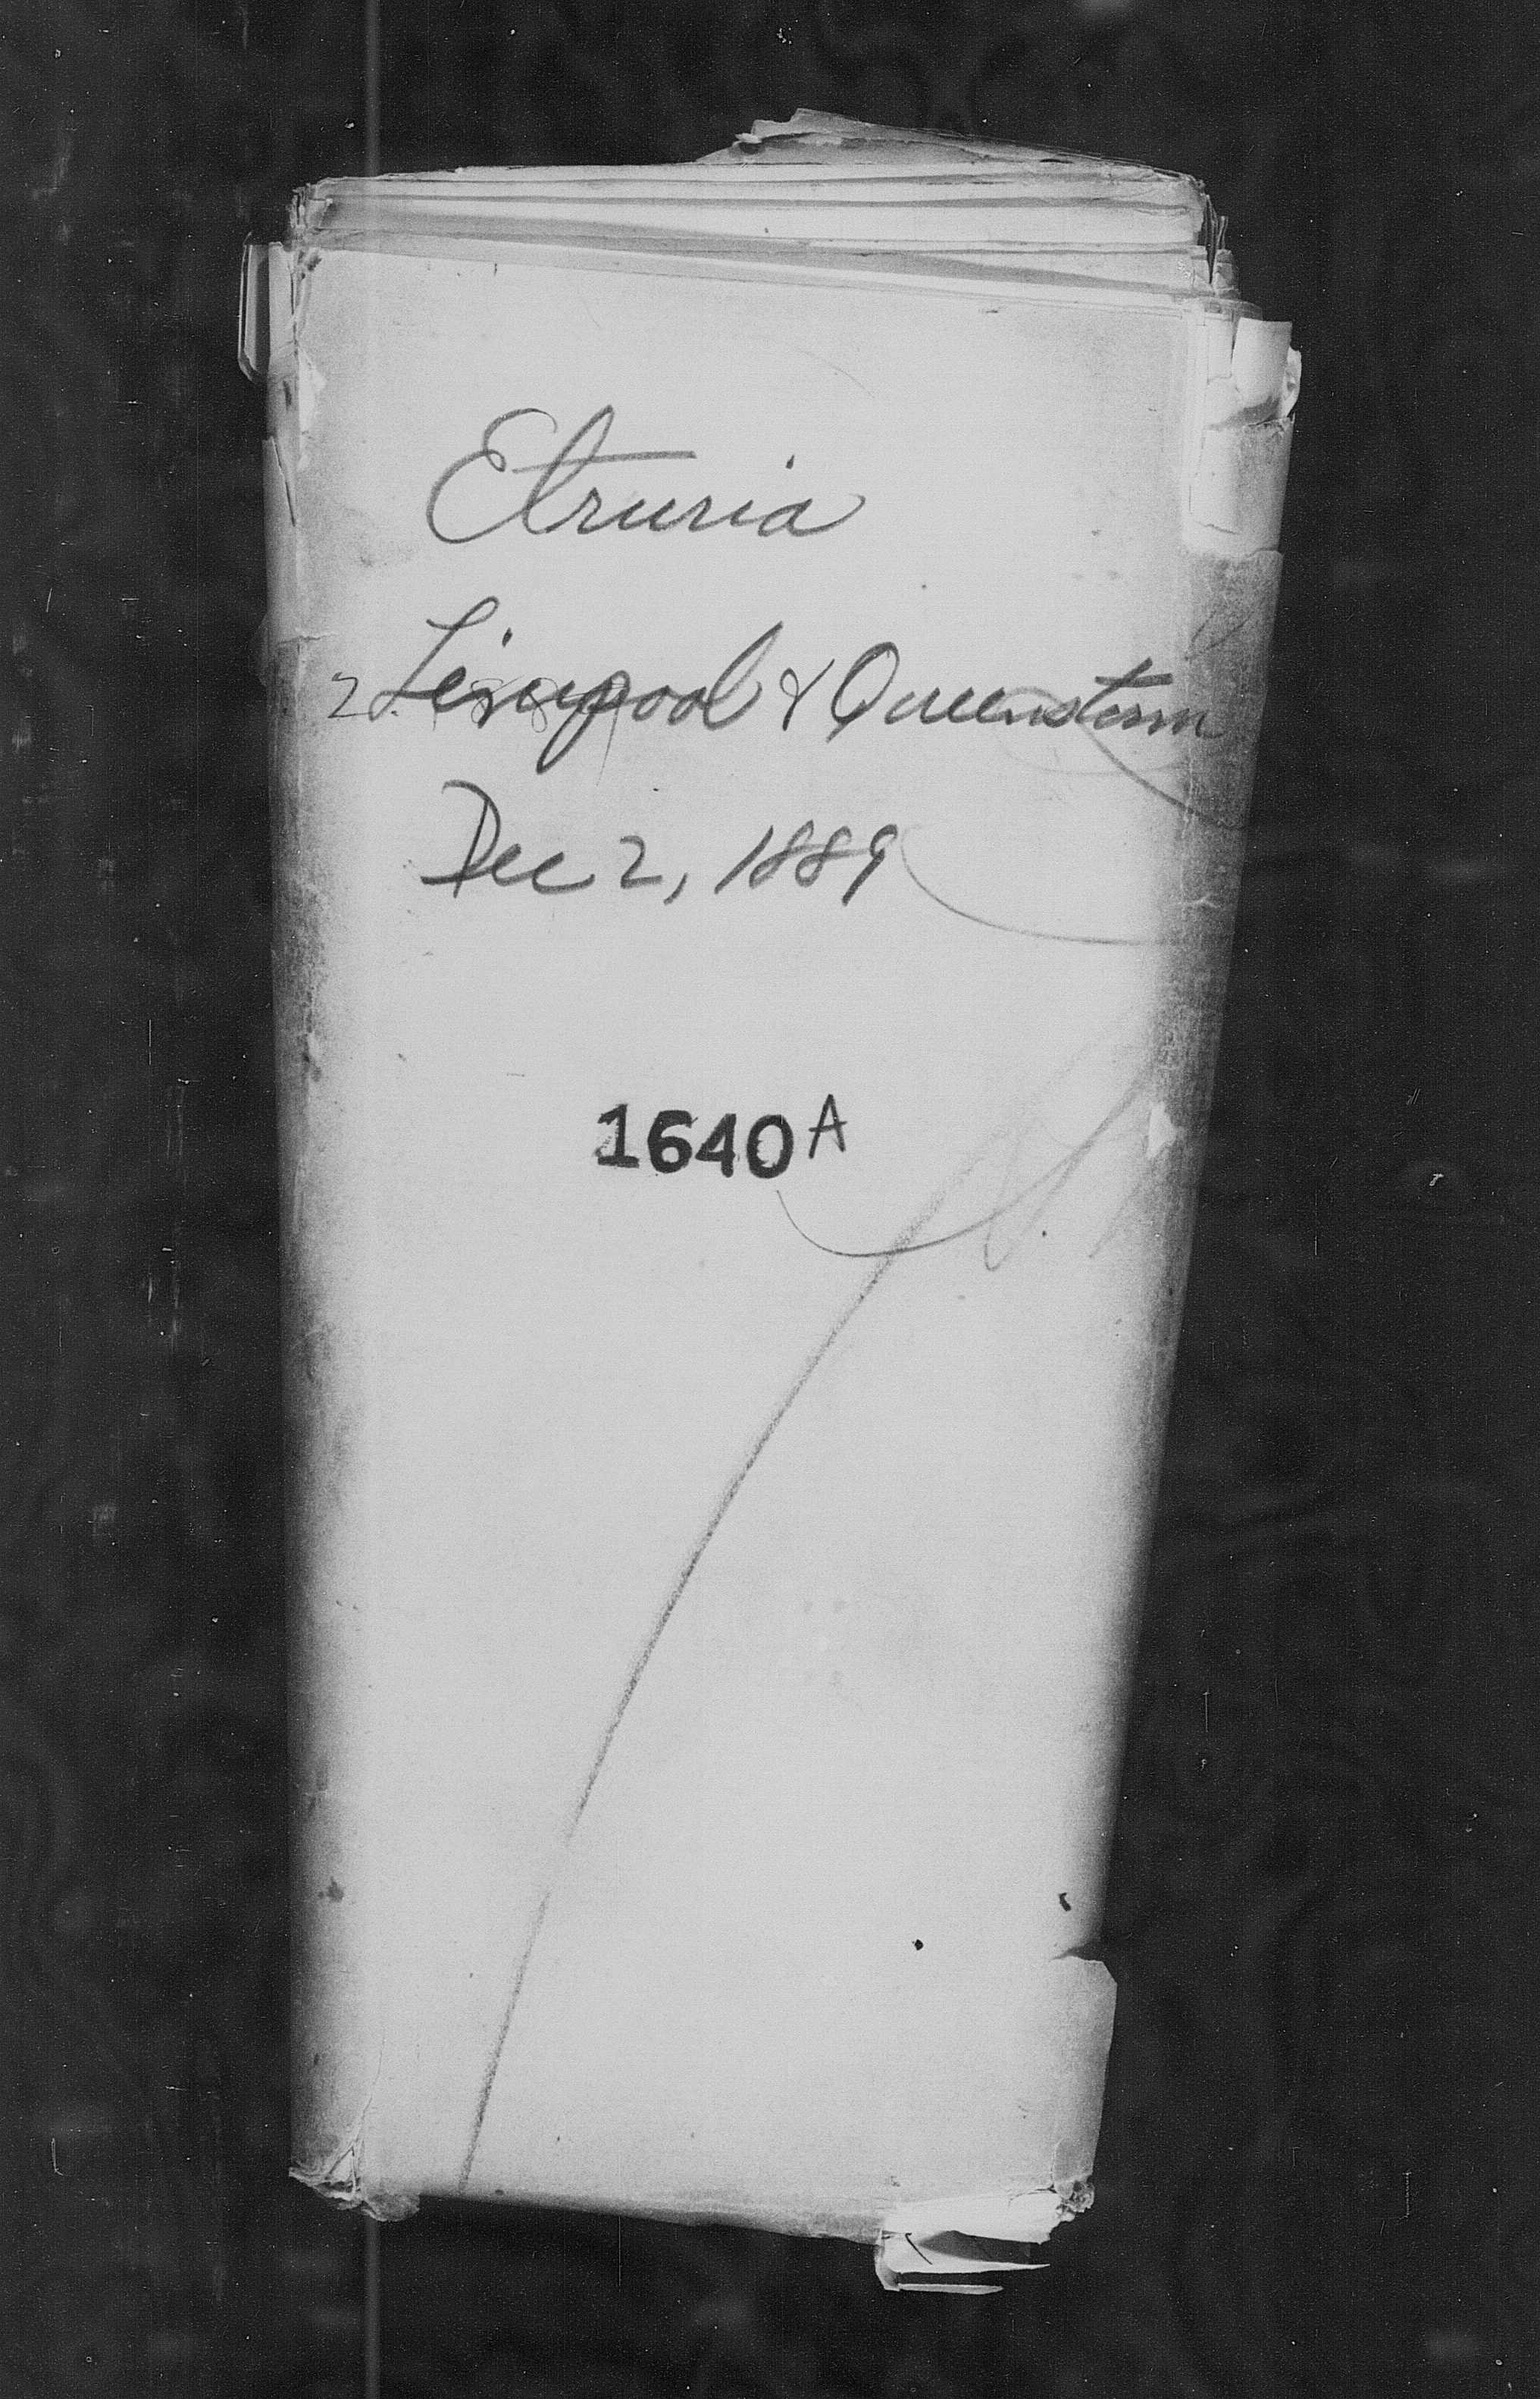 Etruria
Liverpool & Queenstown
Dec 2, 1889
1640 A